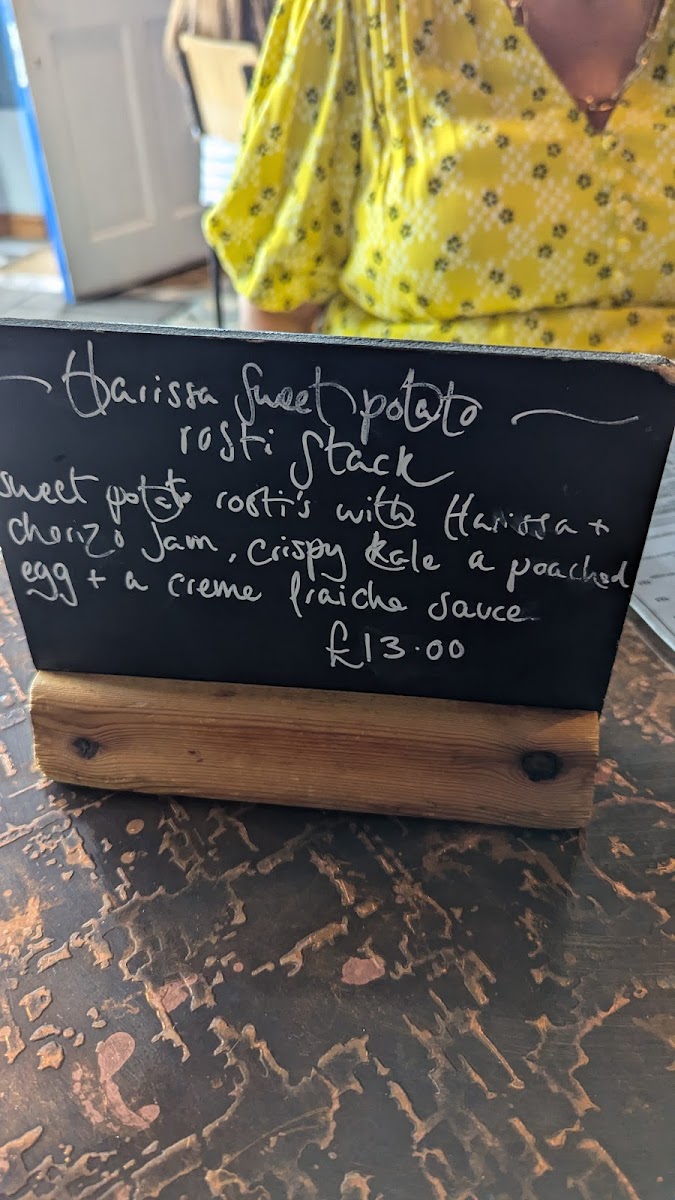 Harissa Sweet potato
rosti Stack
sweet potato rosti's with Harissa +
chorizo Jam, crispy kale a poached
egg + a creme fraiche sauce
£13.00